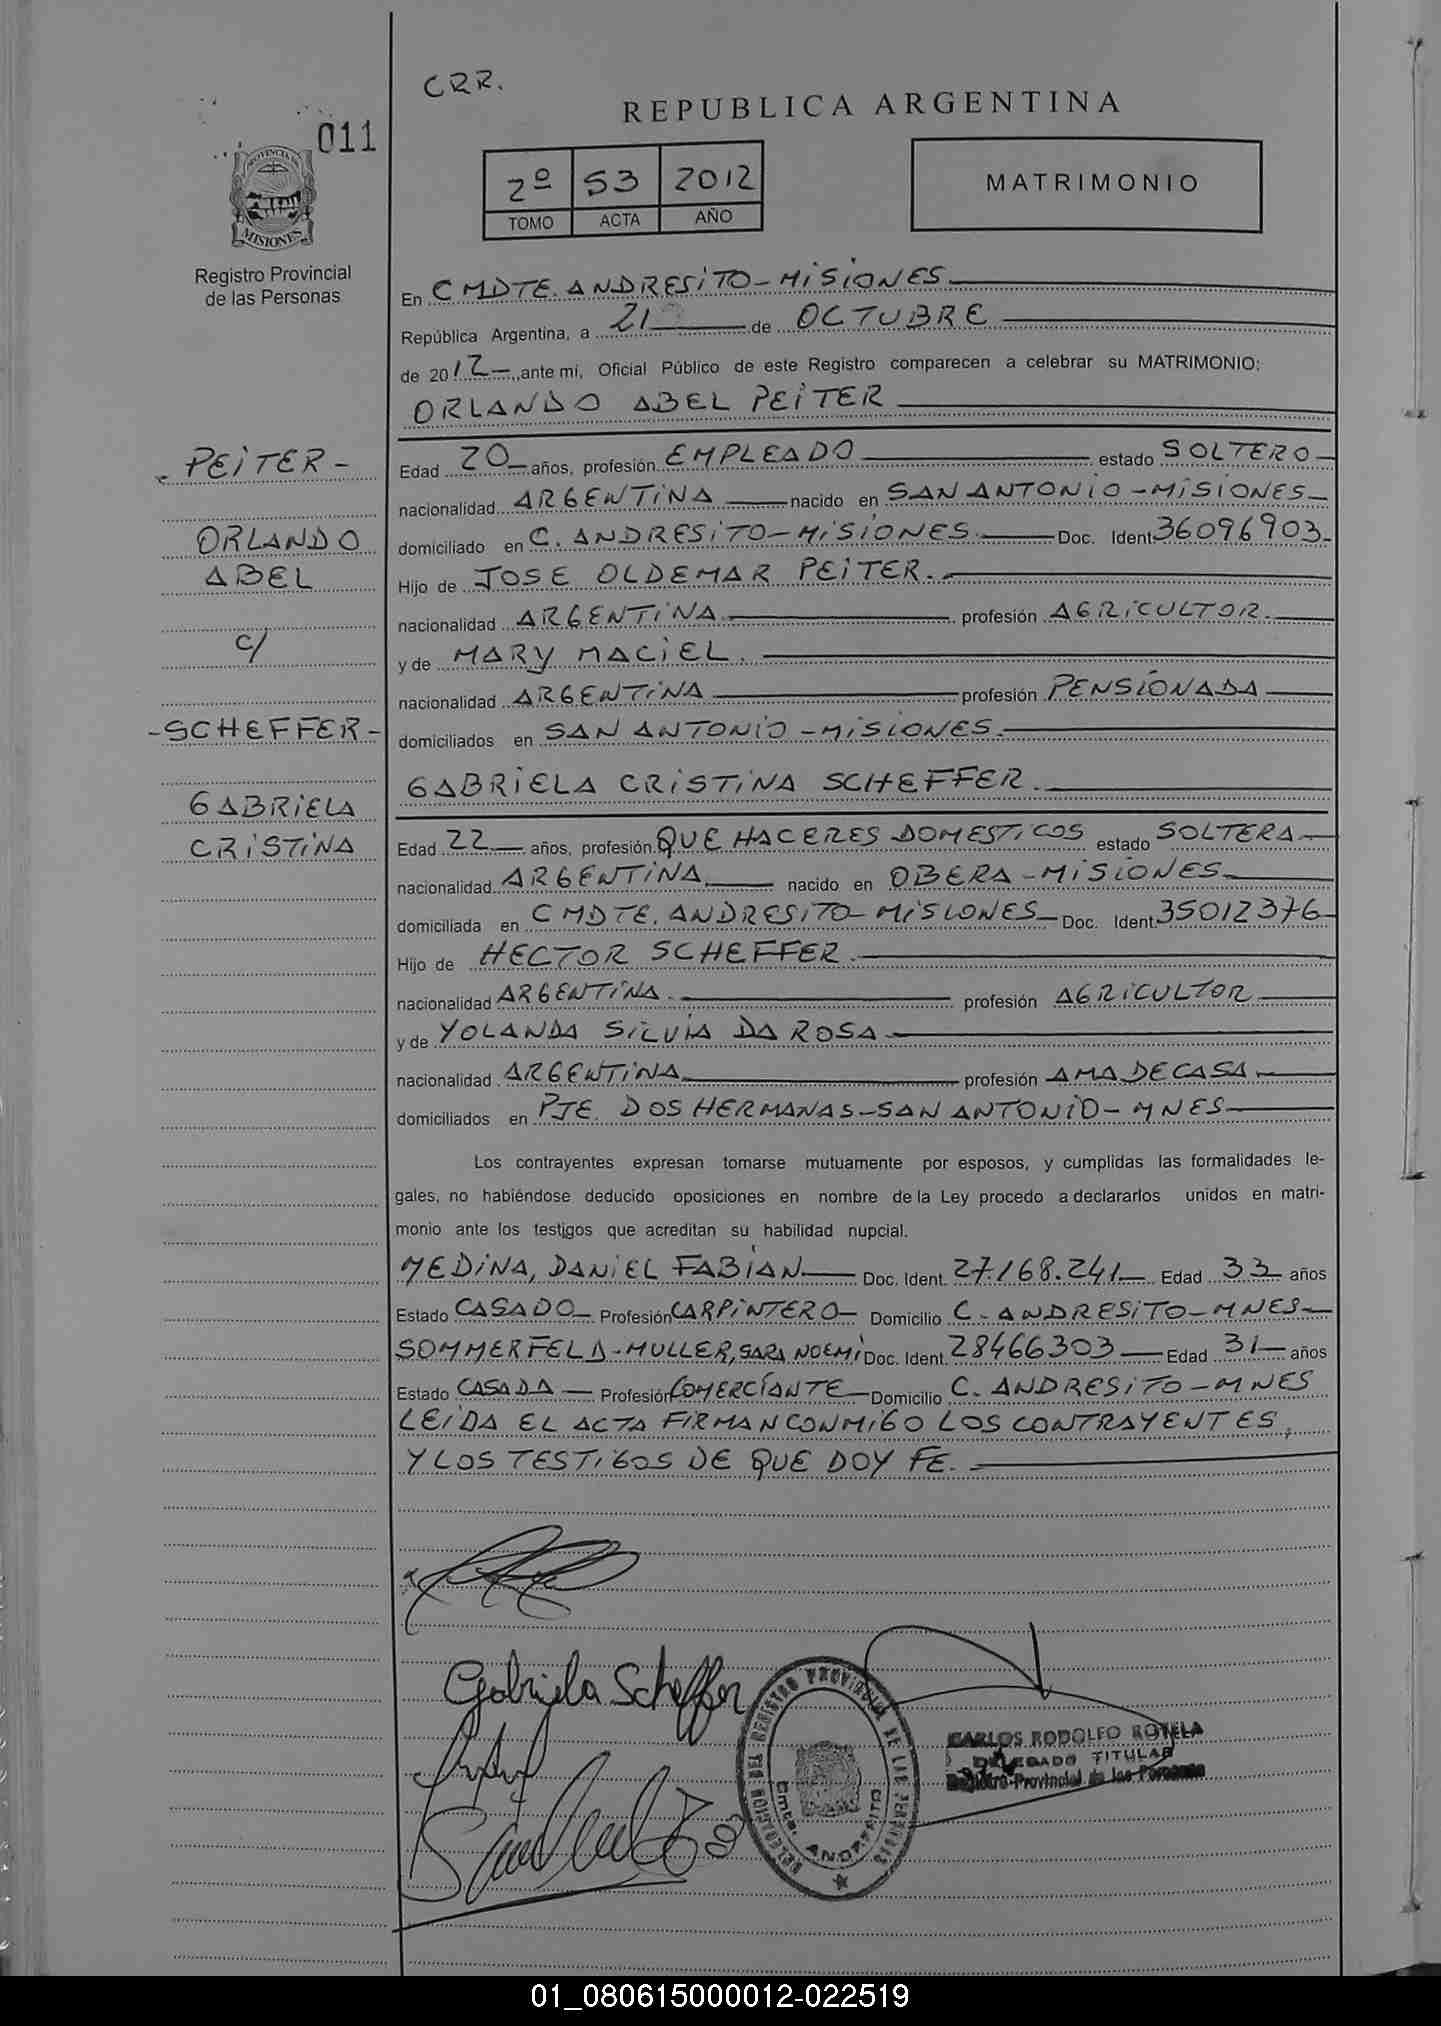 CRR.
REPUBLICA ARGENTINA
011
2º 53 2012
TOMO ACTA AÑO
MATRIMONIO
PROVINCIA DE
MISIONES
Registro Provincial
de las Personas
En CMDTE. ANDRESITO - MISIONES
República Argentina, a 21 de OCTUBRE
de 2012 -, ante mí, Oficial Público de este Registro comparecen a celebrar su MATRIMONIO:
ORLANDO ABEL PEITER
PEITER -
ORLANDO
ABEL
c/
- SCHEFFER -
GABRIELA
CRISTINA
Edad 20 años, profesión EMPLEADO estado SOLTERO
nacionalidad ARGENTINA nacido en SAN ANTONIO - MISIONES
domiciliado en C. ANDRESITO - MISIONES. Doc. Ident 36096903
Hijo de JOSE OLDEMAR PEITER.
nacionalidad ARGENTINA profesión AGRICULTOR.
y de MARY MACIEL.
nacionalidad ARGENTINA profesión PENSIONADA
domiciliados en SAN ANTONIO - MISIONES.
GABRIELA CRISTINA SCHEFFER.
Edad 22 años, profesión QUE HACERES DOMESTICOS estado SOLTERA
nacionalidad ARGENTINA nacido en OBERA - MISIONES
domiciliada en CMDTE. ANDRESITO - MISIONES Doc. Ident. 35012376
Hijo de HECTOR SCHEFFER.
nacionalidad ARGENTINA. profesión AGRICULTOR
y de YOLANDA SILVIA DA ROSA
nacionalidad ARGENTINA profesión AMA DE CASA
domiciliados en PJE. DOS HERMANAS - SAN ANTONIO - MNES
Los contrayentes expresan tomarse mutuamente por esposos, y cumplidas las formalidades le-
gales, no habiéndose deducido oposiciones en nombre de la Ley procedo a declararlos unidos en matri-
monio ante los testigos que acreditan su habilidad nupcial.
MEDINA, DANIEL FABIAN Doc. Ident. 27.168.241 Edad 33 años
Estado CASADO Profesión CARPINTERO Domicilio C. ANDRESITO - MNES
SOMMERFELD - MULLER, SARA NOEMI Doc. Ident. 28466303 Edad 31 años
Estado CASADA Profesión COMERCIANTE Domicilio C. ANDRESITO - MNES
LEIDA EL ACTA FIRMAN CONMIGO LOS CONTRAYENTES,
Y LOS TESTIGOS DE QUE DOY FE.
Gabriela Scheffer
DELEGACION DEL REGISTRO PROVINCIAL DE LAS PERSONAS
Cmte. ANDRESITO
CARLOS RODOLFO ROTELA
DELEGADO TITULAR
Registro Provincial de las Personas
01_080615000012-022519